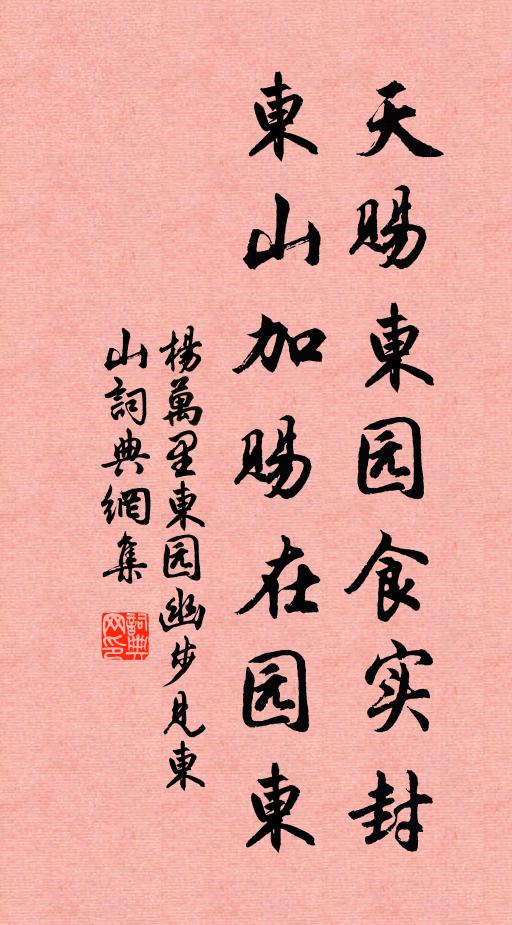 天赐東园食实封
東山加赐在园東
楊萬里東园幽步見東
山詞典網集
詞典
网印